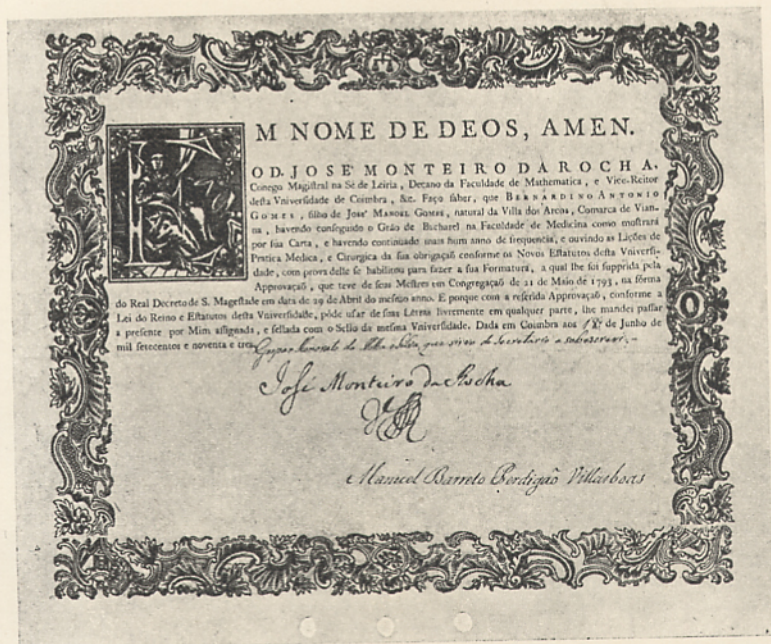 EM NOME DE DEOS, AMEN.
O D. JOSE' MONTEIRO DA ROCHA,
Conego Magistral na Sé de Leiria, Decano da Faculdade de Mathematica, e Vice-Reitor
desta Vniversidade de Coimbra, &c. Faço saber, que BERNARDINO ANTONIO
GOMES, filho de Jose' MANOEL GOMES, natural da Villa dos Arcos, Comarca de Vian-
na, havendo conseguido o Gráo de Bacharel na Faculdade de Medicina como mostrará
por sua Carta, e havendo continuado mais hum anno de frequencia, e ouvindo as Lições de
Pratica Medica, e Cirurgica da sua obrigação conforme os Novos Estatutos desta Vniversi-
dade, com prova delle se habilitou para fazer a sua Formatura, a qual lhe foi supprida pela
Approvação, que teve de seus Mestres em Congregação de 21 de Maio de 1793, na fórma
do Real Decreto de S. Magestade em data de 29 de Abril do mesmo anno. E porque com a referida Approvação, conforme a
Lei do Reino e Estatutos desta Vniversidade, póde usar de suas Letras livremente em qualquer parte, lhe mandei passar
a presente por Mim assignada, e sellada com o Sello da mesma Vniversidade. Dada em Coimbra aos de Junho de
mil setecentos e noventa e tres Gaspar da que de Secretario a sobescrevi.
José Monteiro da Rocha
Manoel Barreto Perdigão Villasboas